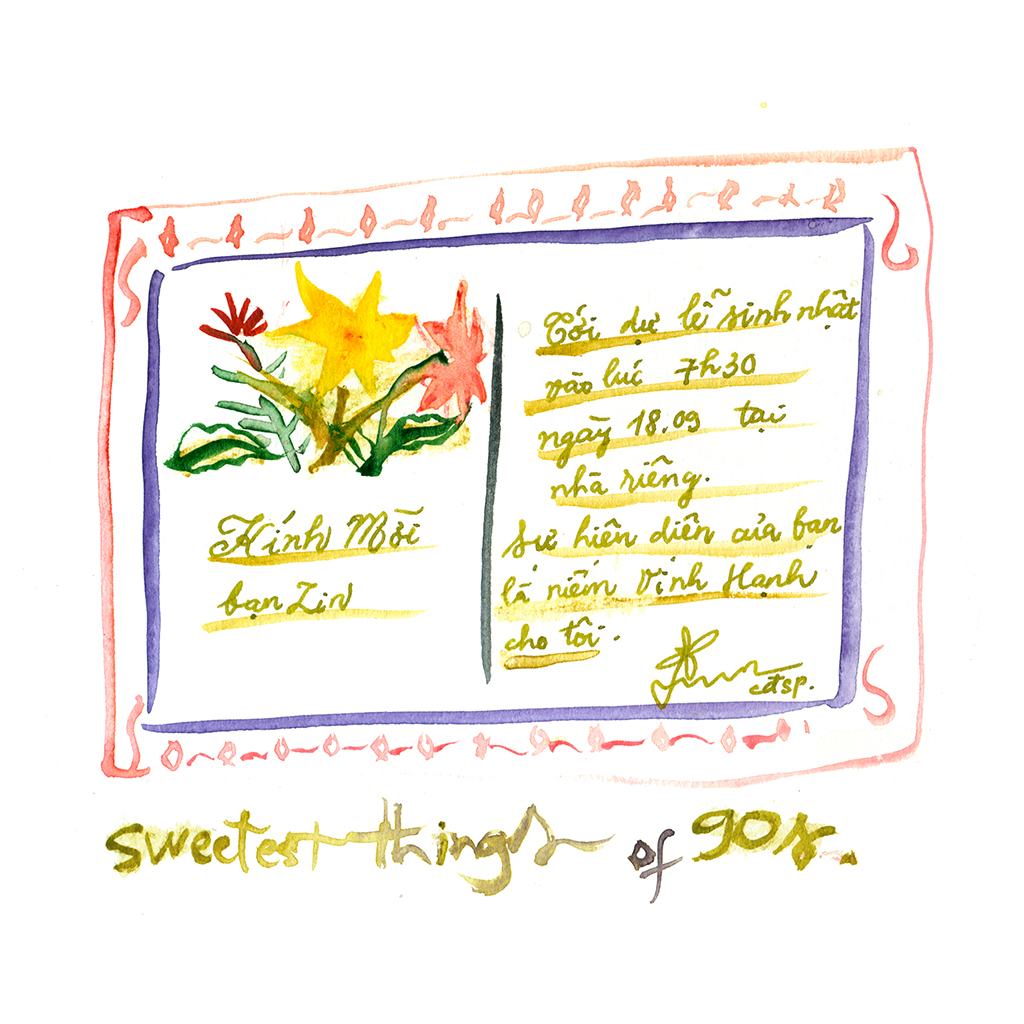 Kính Mời
bạn Zin
Tới dự lễ sinh nhật
vào lúc 7h30
ngày 18.09 tại
nhà riêng.
Sự hiện diện của bạn
là niềm Vinh Hạnh
cho tôi.
cđsp.
sweetest things of 90s.